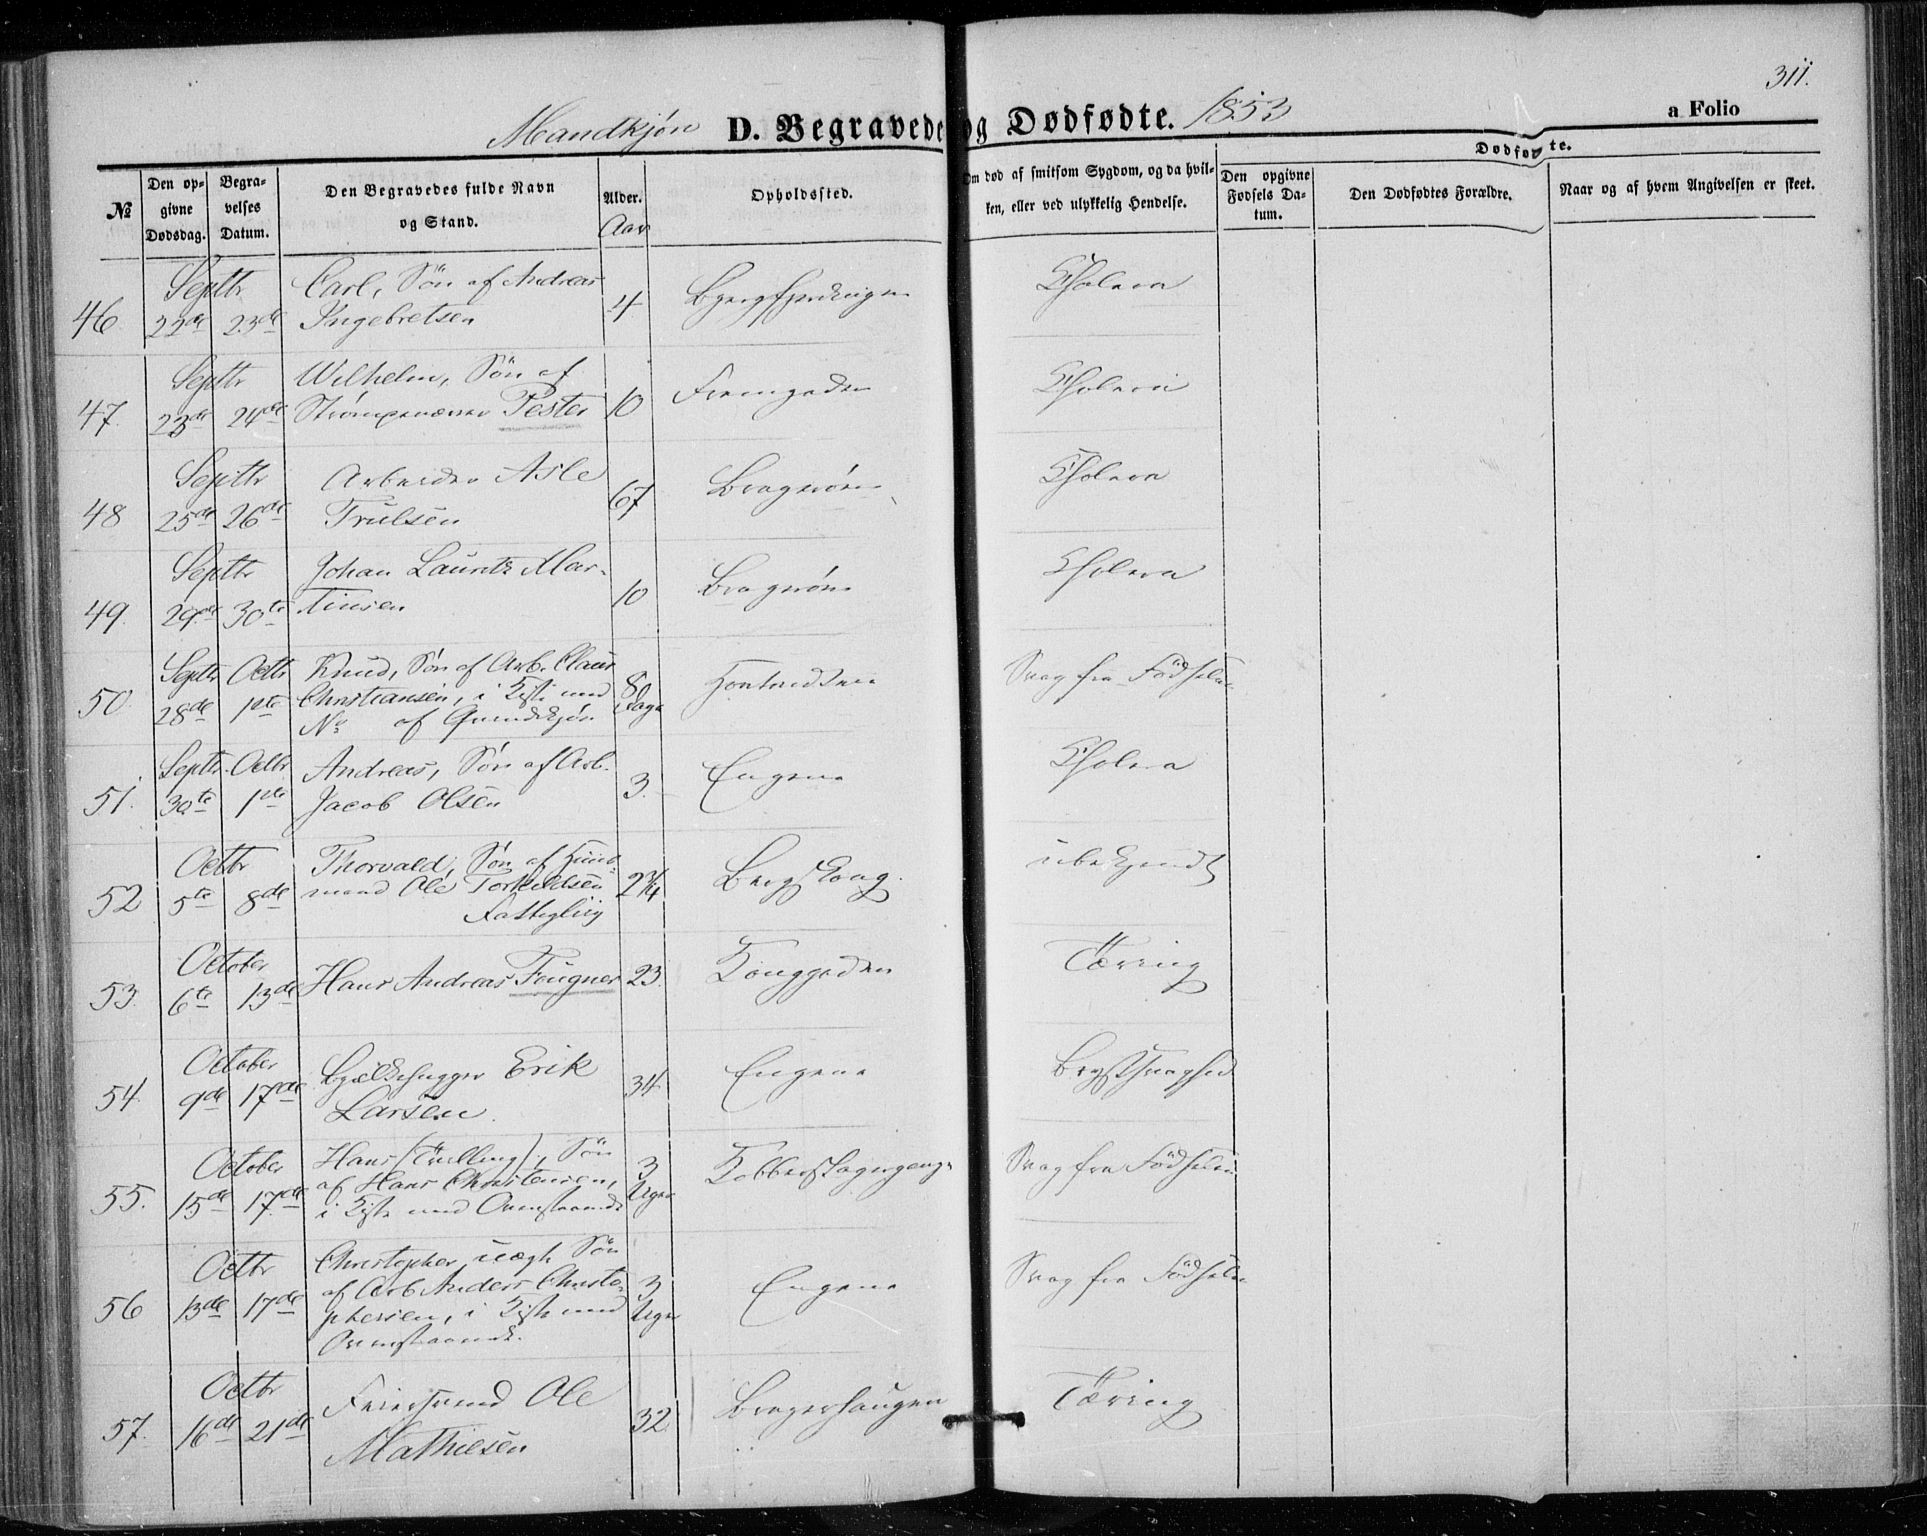 311.
Mandkjøn D. Begravede og Dødfødte. 1853 a Folio
№
Den opgivne Dødsdag.
Begravelses Datum.
Den Begravedes fulde Navn og Stand.
Alder. Aar
Opholdssted.
Om død af smitsom Sygdom, og da hvilken, eller ved ulykkelig Hendelse.
Dødfødte.
Den opgivne Fødsels Datum.
Den Dødfødtes Forældre.
Naar og af hvem Angivelsen er skeet.
46. Septbr 22de 23de Carl, Søn af Andreas Ingebretsen 4 Cholera
47. Septbr 23de 24de Wilhelm, Søn af Pester 10 Cholera
48 Septbr 25de 26de Arbeider Asle Trulsen 67 Bragernes Cholera
49. Septbr 29de 30te Johan Lauritz Martinsen 10 Bragernes Cholera
50. Septbr 28de Octbr 1ste Knud, Søn af Arb. Claus Christiansen, i Kiste med No af Qvindekjøn 8 Dage Svag fra Fødselen
51. Septbr. 30te Octbr 1ste Andreas, Søn af Arb. Jacob Olsen 3. Engene Cholera
52 Octbr 5te 8de Thorvald, Søn af Huusmand Ole Torkildsen Fattiglig 2 3/4 Bergskoug. ubekjendt
53. October 6te 13de Hans Andreas Fougner 23. Konggaden Tæring
54. October 9de 17de Bjælkehugger Erik Larsen. 34 Engene Brystsvaghed
55. October 15de 17de Hans (Trilling), Søn af Hans Christensen, i Kiste med Ovenstaaende 3 Uger Kobberslagergangen Svag fra Fødselen
56 Octbr 13de 17de Christopher uægte Søn af Arb Anders Christophersen, i Kiste med Ovenstaaende. 3 Uger Engene Svag fra Fødselen
57. Octbr 16de 21de Feiersvend Ole Mathiesen 32 Bragerhaugen Tæring